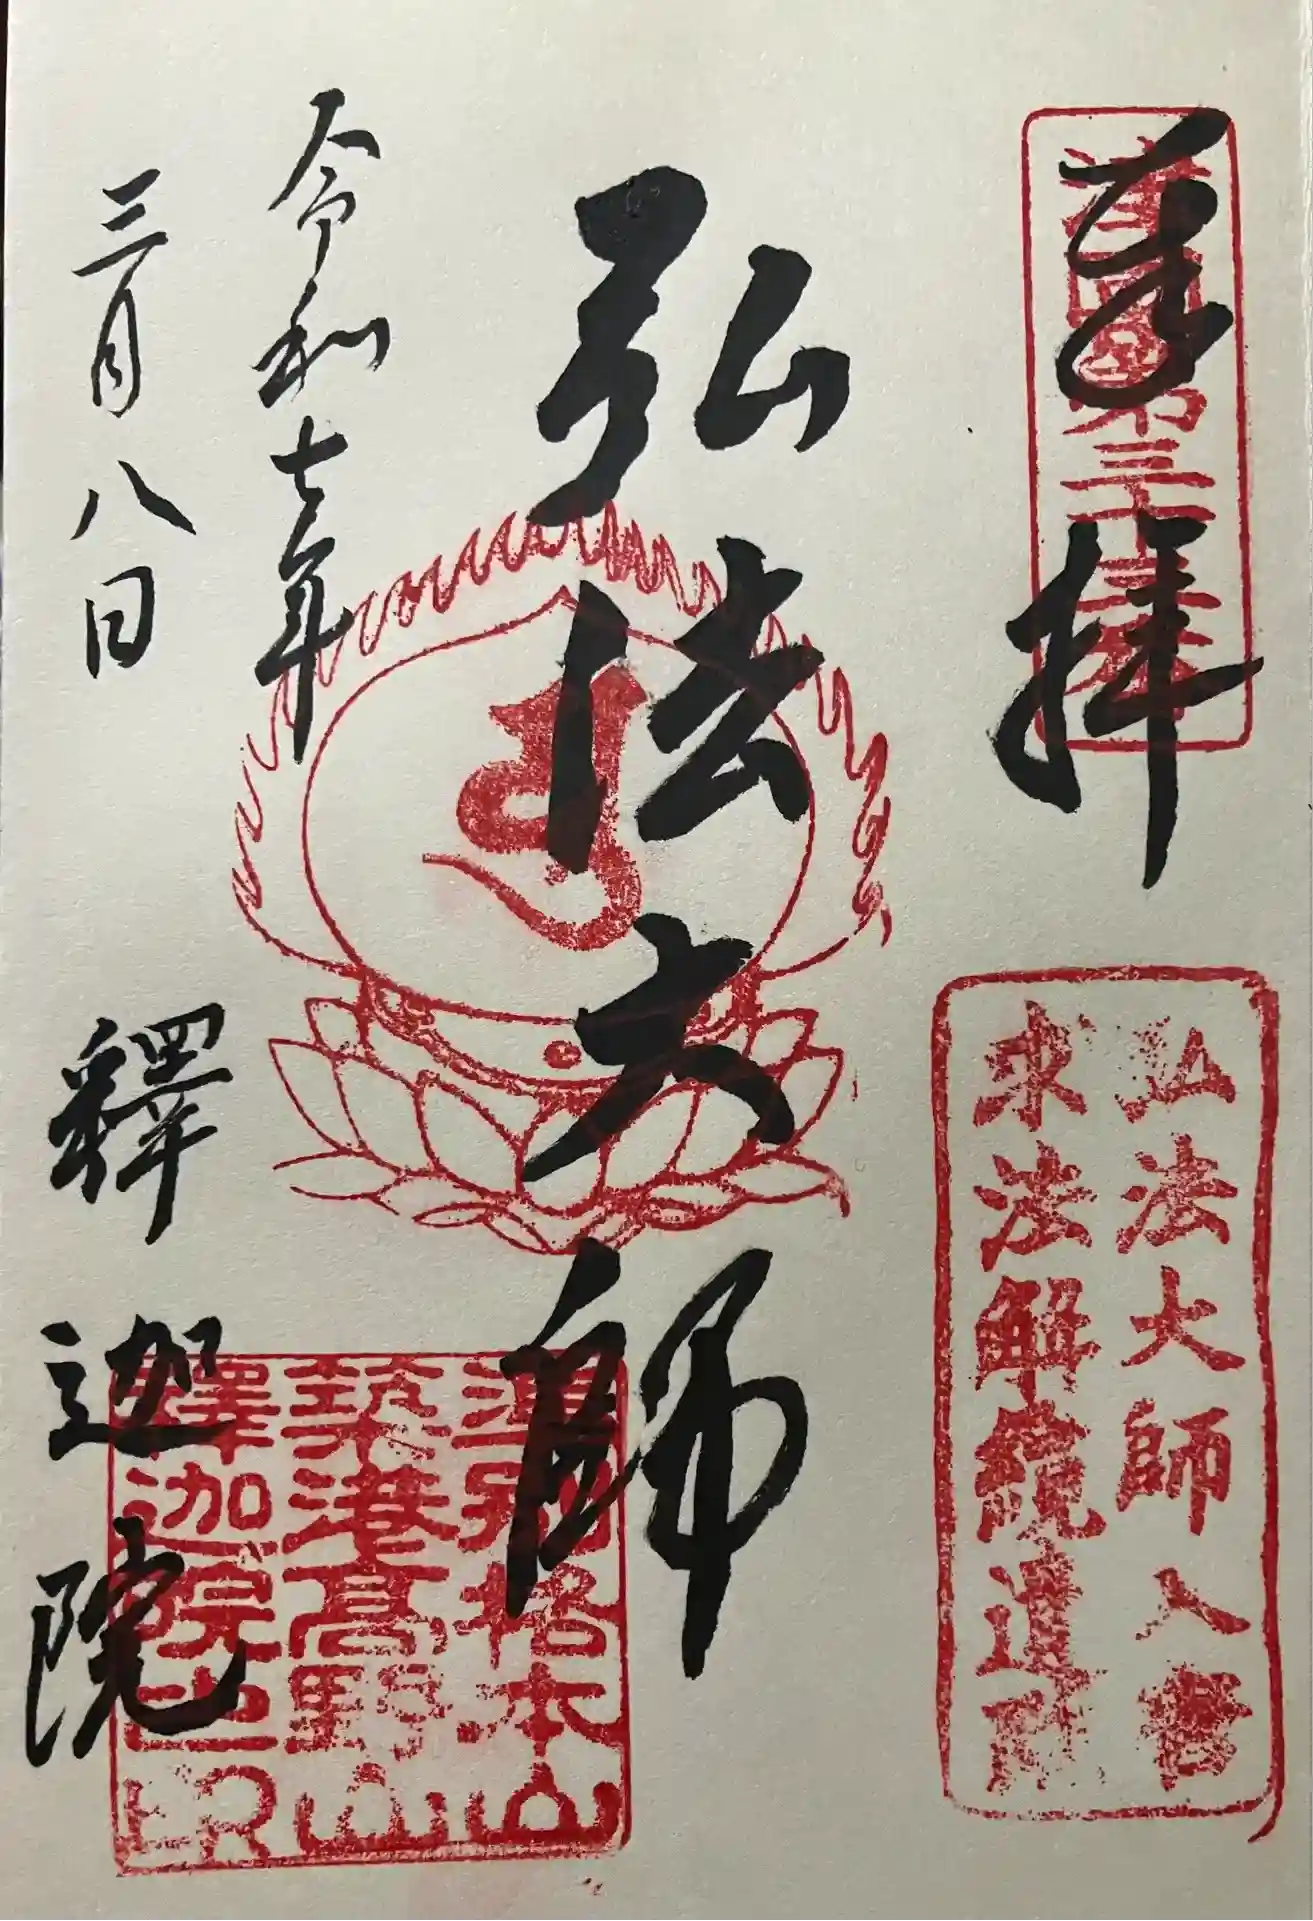 奉拝
弘法大師入唐
求法解纜遺跡
弘法大師
準別格本山
築港高野山
釋迦院之印
令和七年
三月八日
釋迦院